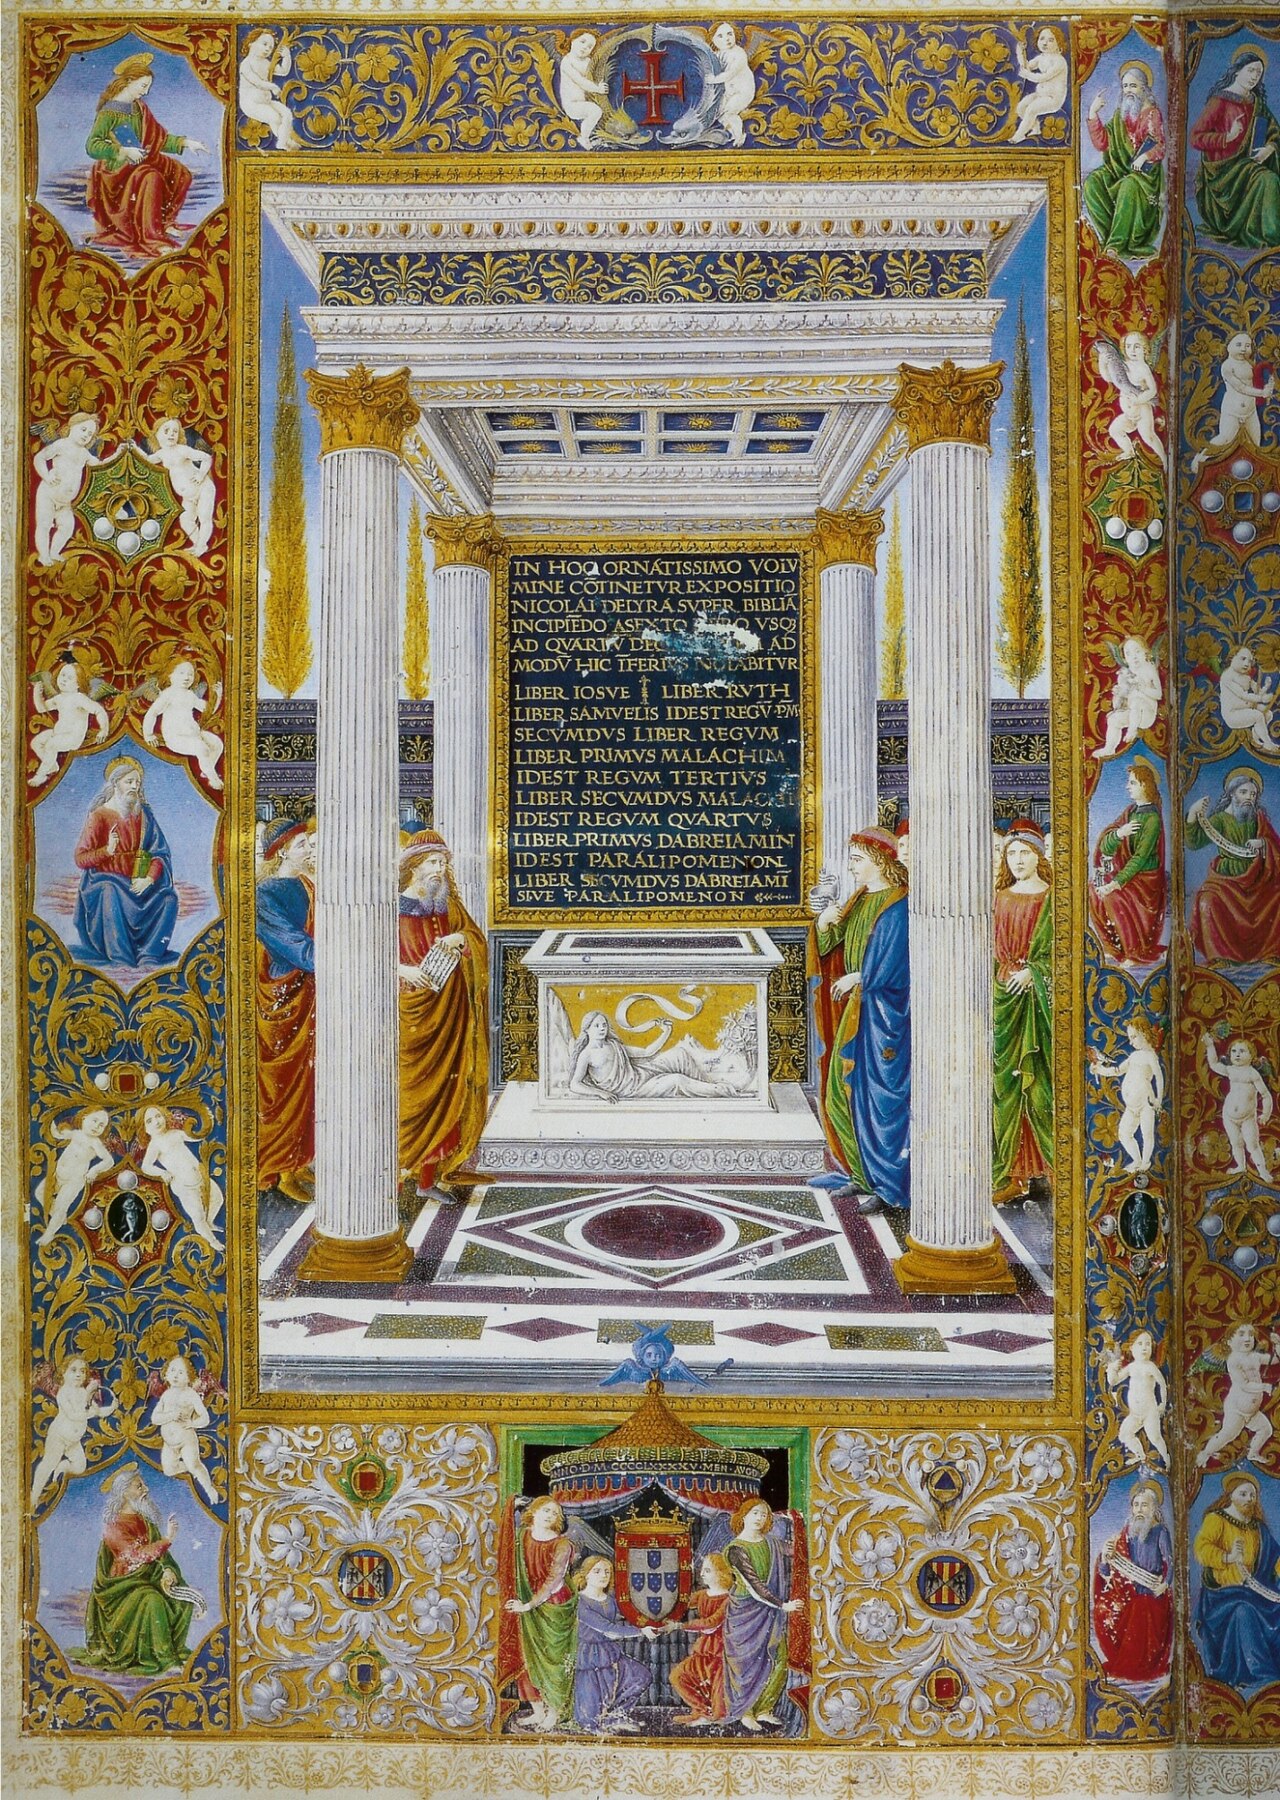 IN HOC ORNATISSIMO VOLV
MINE CŌTINETVR EXPOSITIO
NICOLAI DELYRA SVPER BIBLIĀ
INCIPIĒDO ASEXTO VSQȝ
AD QUARTV AD
MODV̄ HIC ĪFERIVS NOTABITVR
LIBER IOSVE LIBER RVTH
LIBER SAMVELIS IDEST REGV̄ PM̄
SECVMDVS LIBER REGVM
LIBER PRIMVS MALACHIM
IDEST REGVM TERTIVS
LIBER SECVMDVS MALACHI
IDEST REGVM QUARTVS
LIBER PRIMVS DABREIAMIN
IDEST PARALIPOMENON
LIBER SECVMDVS DABREIAMĪ
SIVE PARALIPOMENON